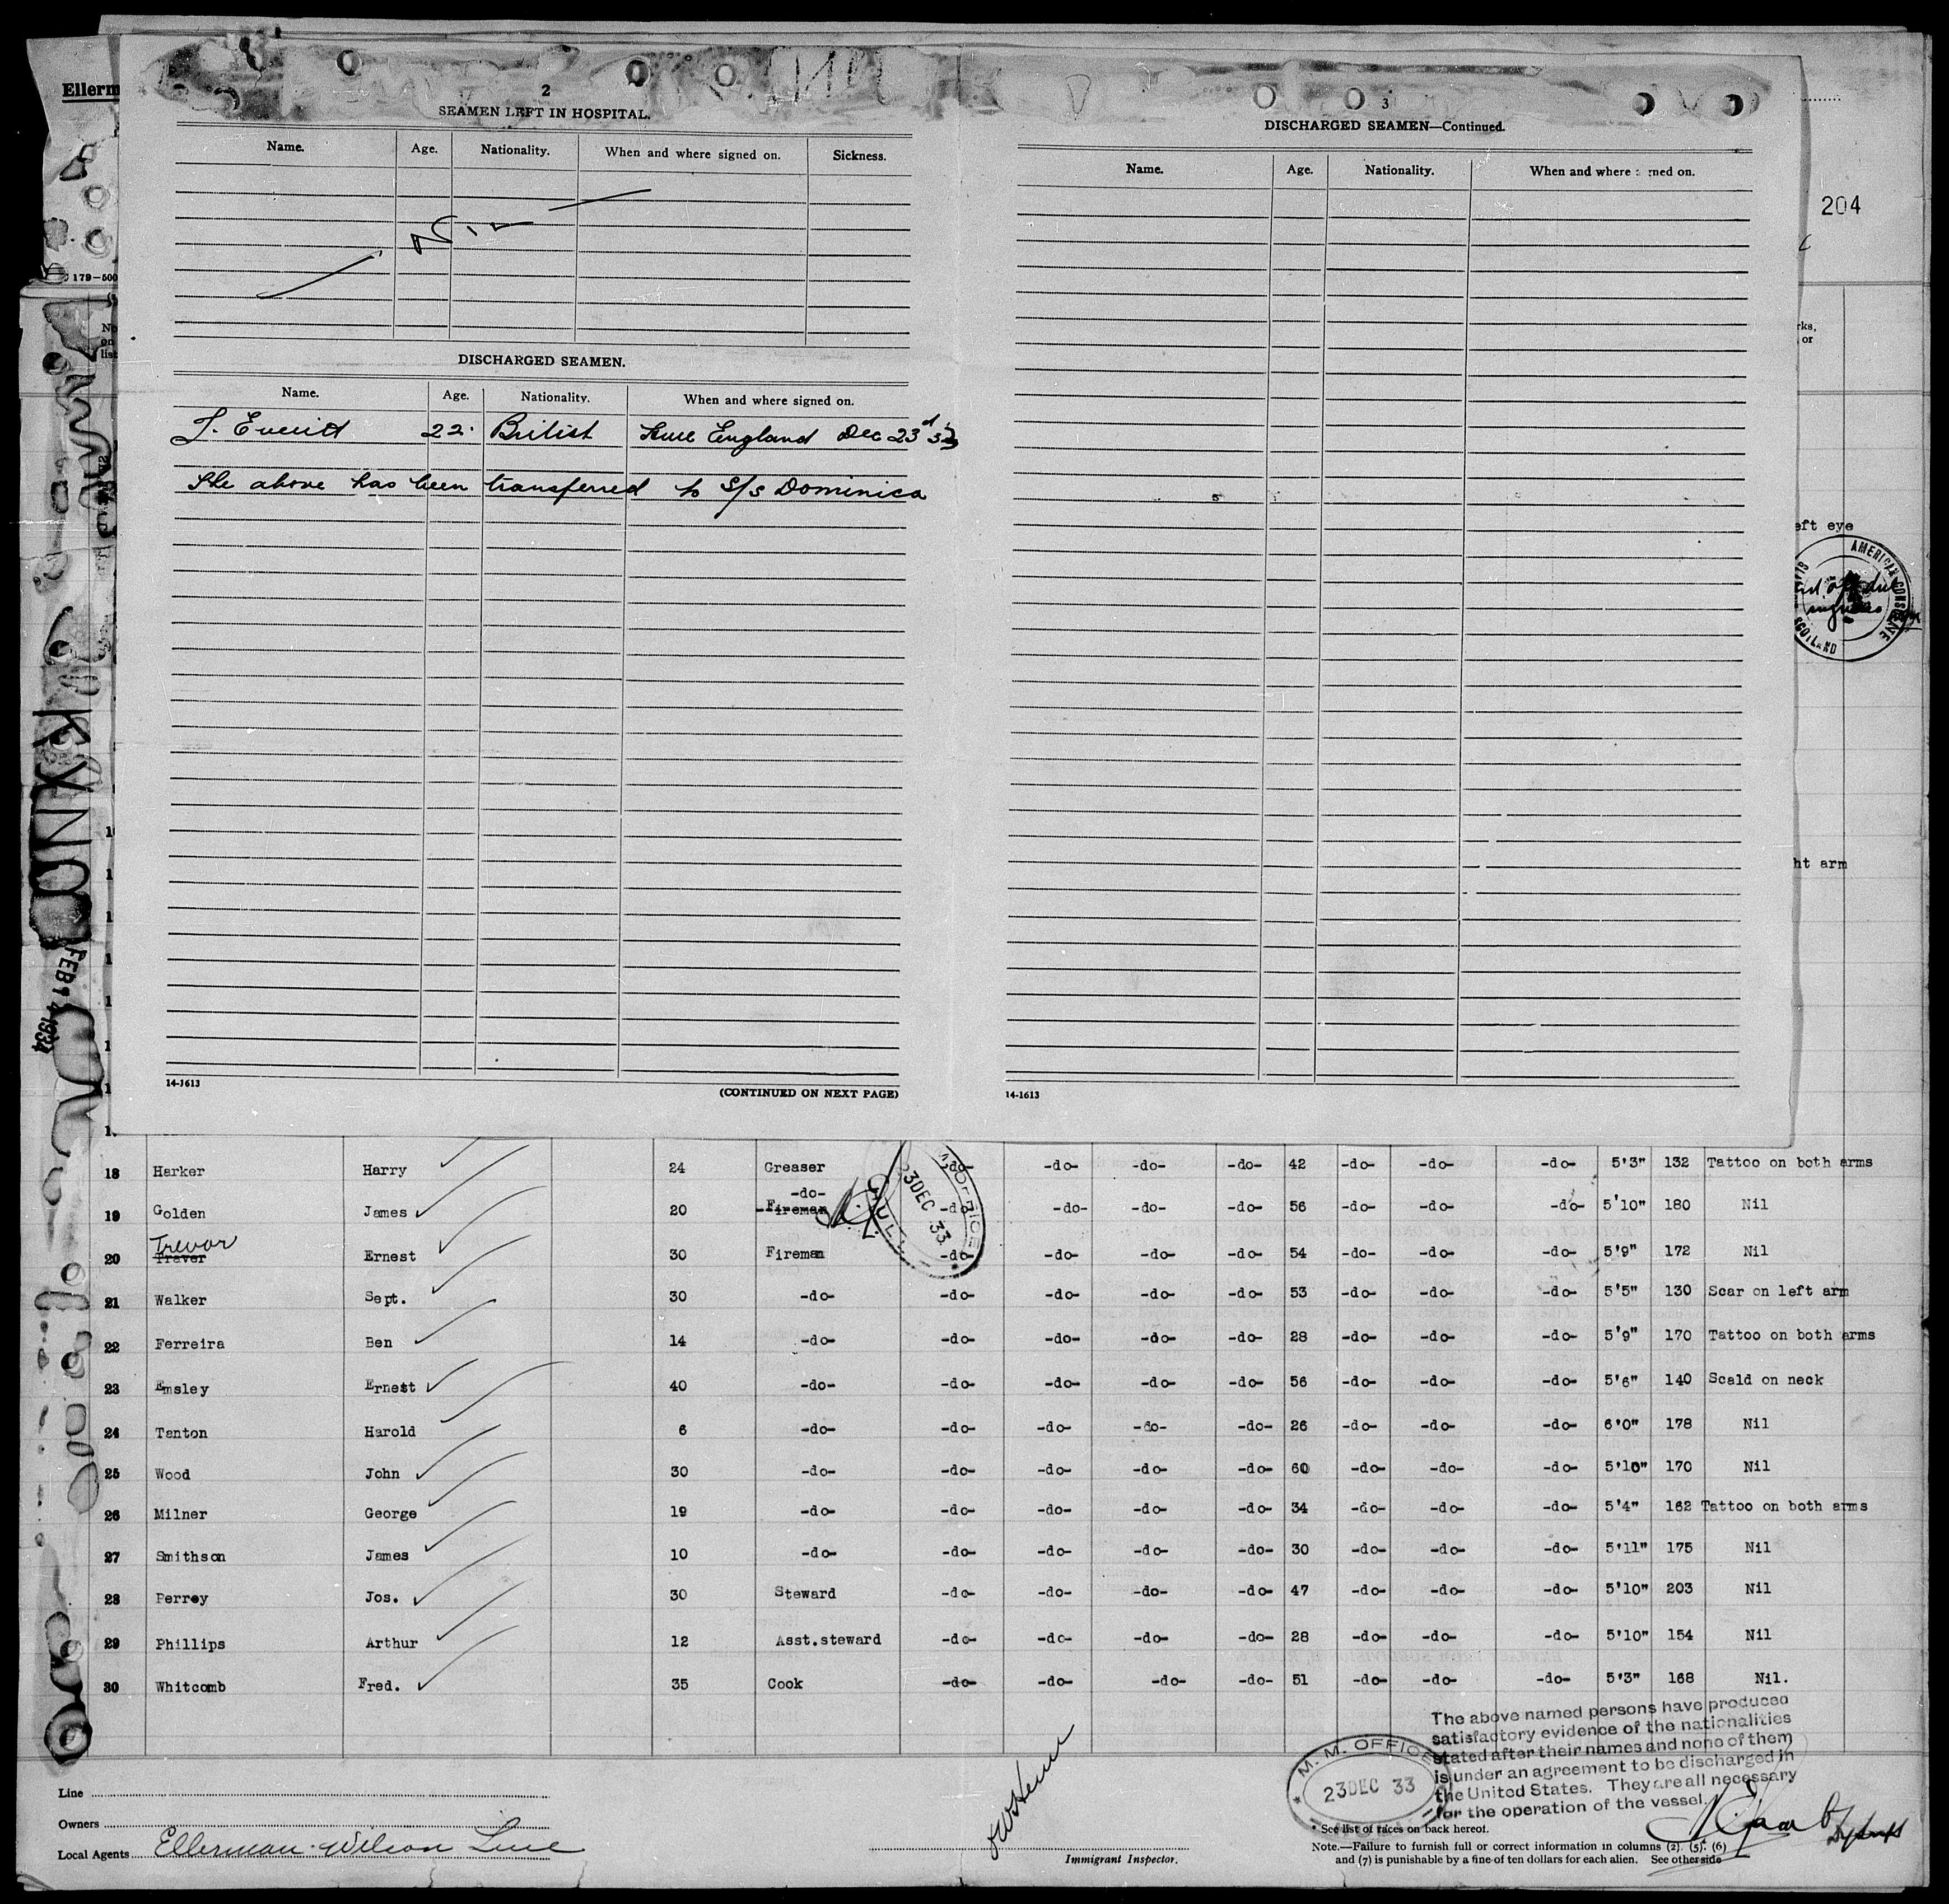 Ellerm
179-500
204
2
SEAMEN LEFT IN HOSPITAL.
Name. Age. Nationality. When and where signed on. Sickness.
Nil
DISCHARGED SEAMEN.
Name. Age. Nationality. When and where signed on.
J. Everitt 22. British Hull England Dec 23rd 33
The above has been transferred to S/s Dominica
14-1613
(CONTINUED ON NEXT PAGE)
3
DISCHARGED SEAMEN—Continued.
Name. Age. Nationality. When and where
14-1613
rks,
or
eft eye
AMERICAN CONSULATE
SCOTLAND
ht arm
FEB 14 1934
18 Harker Harry 24 Greaser -do- -do- -do- -do- 42 -do- -do- -do- 5'3" 132 Tattoo on both arms
-do-
19 Golden James 20 Fireman -do- -do- -do- -do- 56 -do- -do- -do- 5'10" 180 Nil
Trevor
20 Traver Ernest 30 Fireman -do- -do- -do- -do- 54 -do- -do- -do- 5'9" 172 Nil
21 Walker Sept. 30 -do- -do- -do- -do- -do- 53 -do- -do- -do- 5'5" 130 Scar on left arm
22 Ferreira Ben 14 -do- -do- -do- -do- -do- 28 -do- -do- -do- 5'9" 170 Tattoo on both arms
23 Emsley Ernest 40 -do- -do- -do- -do- -do- 56 -do- -do- -do- 5'6" 140 Scald on neck
24 Tanton Harold 6 -do- -do- -do- -do- -do- 26 -do- -do- -do- 6'0" 178 Nil
25 Wood John 30 -do- -do- -do- -do- -do- 60 -do- -do- -do- 5'10" 170 Nil
26 Milner George 19 -do- -do- -do- -do- -do- 34 -do- -do- -do- 5'4" 162 Tattoo on both arms
27 Smithson James 10 -do- -do- -do- -do- -do- 30 -do- -do- -do- 5'11" 175 Nil
28 Perrey Jos. 30 Steward -do- -do- -do- -do- 47 -do- -do- -do- 5'10" 203 Nil
29 Phillips Arthur 12 Asst.steward -do- -do- -do- -do- 28 -do- -do- -do- 5'10" 154 Nil
30 Whitcomb Fred. 35 Cook -do- -do- -do- -do- 51 -do- -do- -do- 5'3" 168 Nil.
23 DEC 33
HULL
The above named persons have produced
satisfactory evidence of the nationalities
stated after their names and none of them
is under an agreement to be discharged in
the United States. They are all necessary
for the operation of the vessel.
M. M. OFFICE
23 DEC 33
Line
Owners
Local Agents Ellerman-Wilson Line
Immigrant Inspector.
* See list of races on back hereof.
Note.—Failure to furnish full or correct information in columns (2), (5), (6)
and (7) is punishable by a fine of ten dollars for each alien. See other side